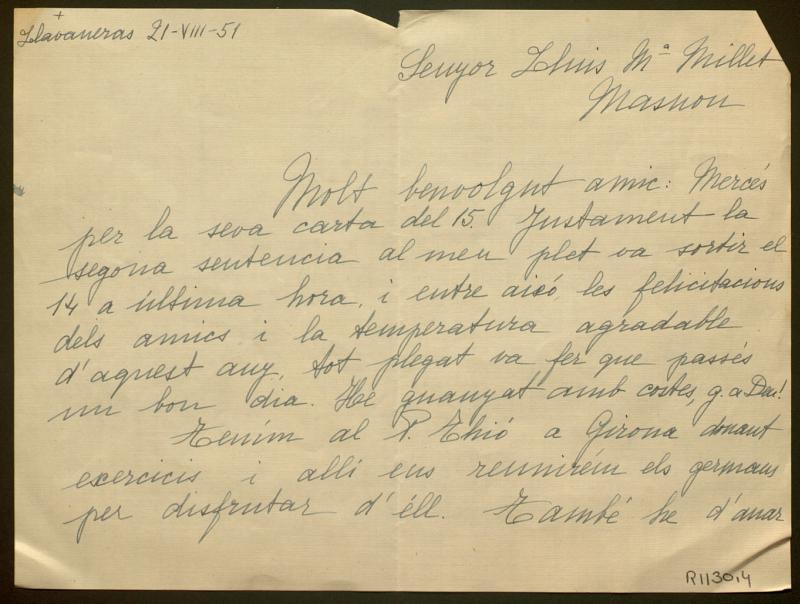 Llavaneras 21-VIII-51
Senyor Lluis Mª Millet
Masnou
Molt benvolgut amic: Mercés
per la seva carta del 15. Justament la
segona sentencia al meu plet va sortir el
14 a última hora, i entre aixó, les felicitacions
dels amics i la temperatura agradable
d'aquest any, tot plegat va fer que passés
un bon dia. He guanyat amb costes, g. a Deu!
Tením al P. Lhió a Girona donant
exercicis i alli ens reunirém els germans
per disfrutar d'éll. També he d'anar
R1130,4